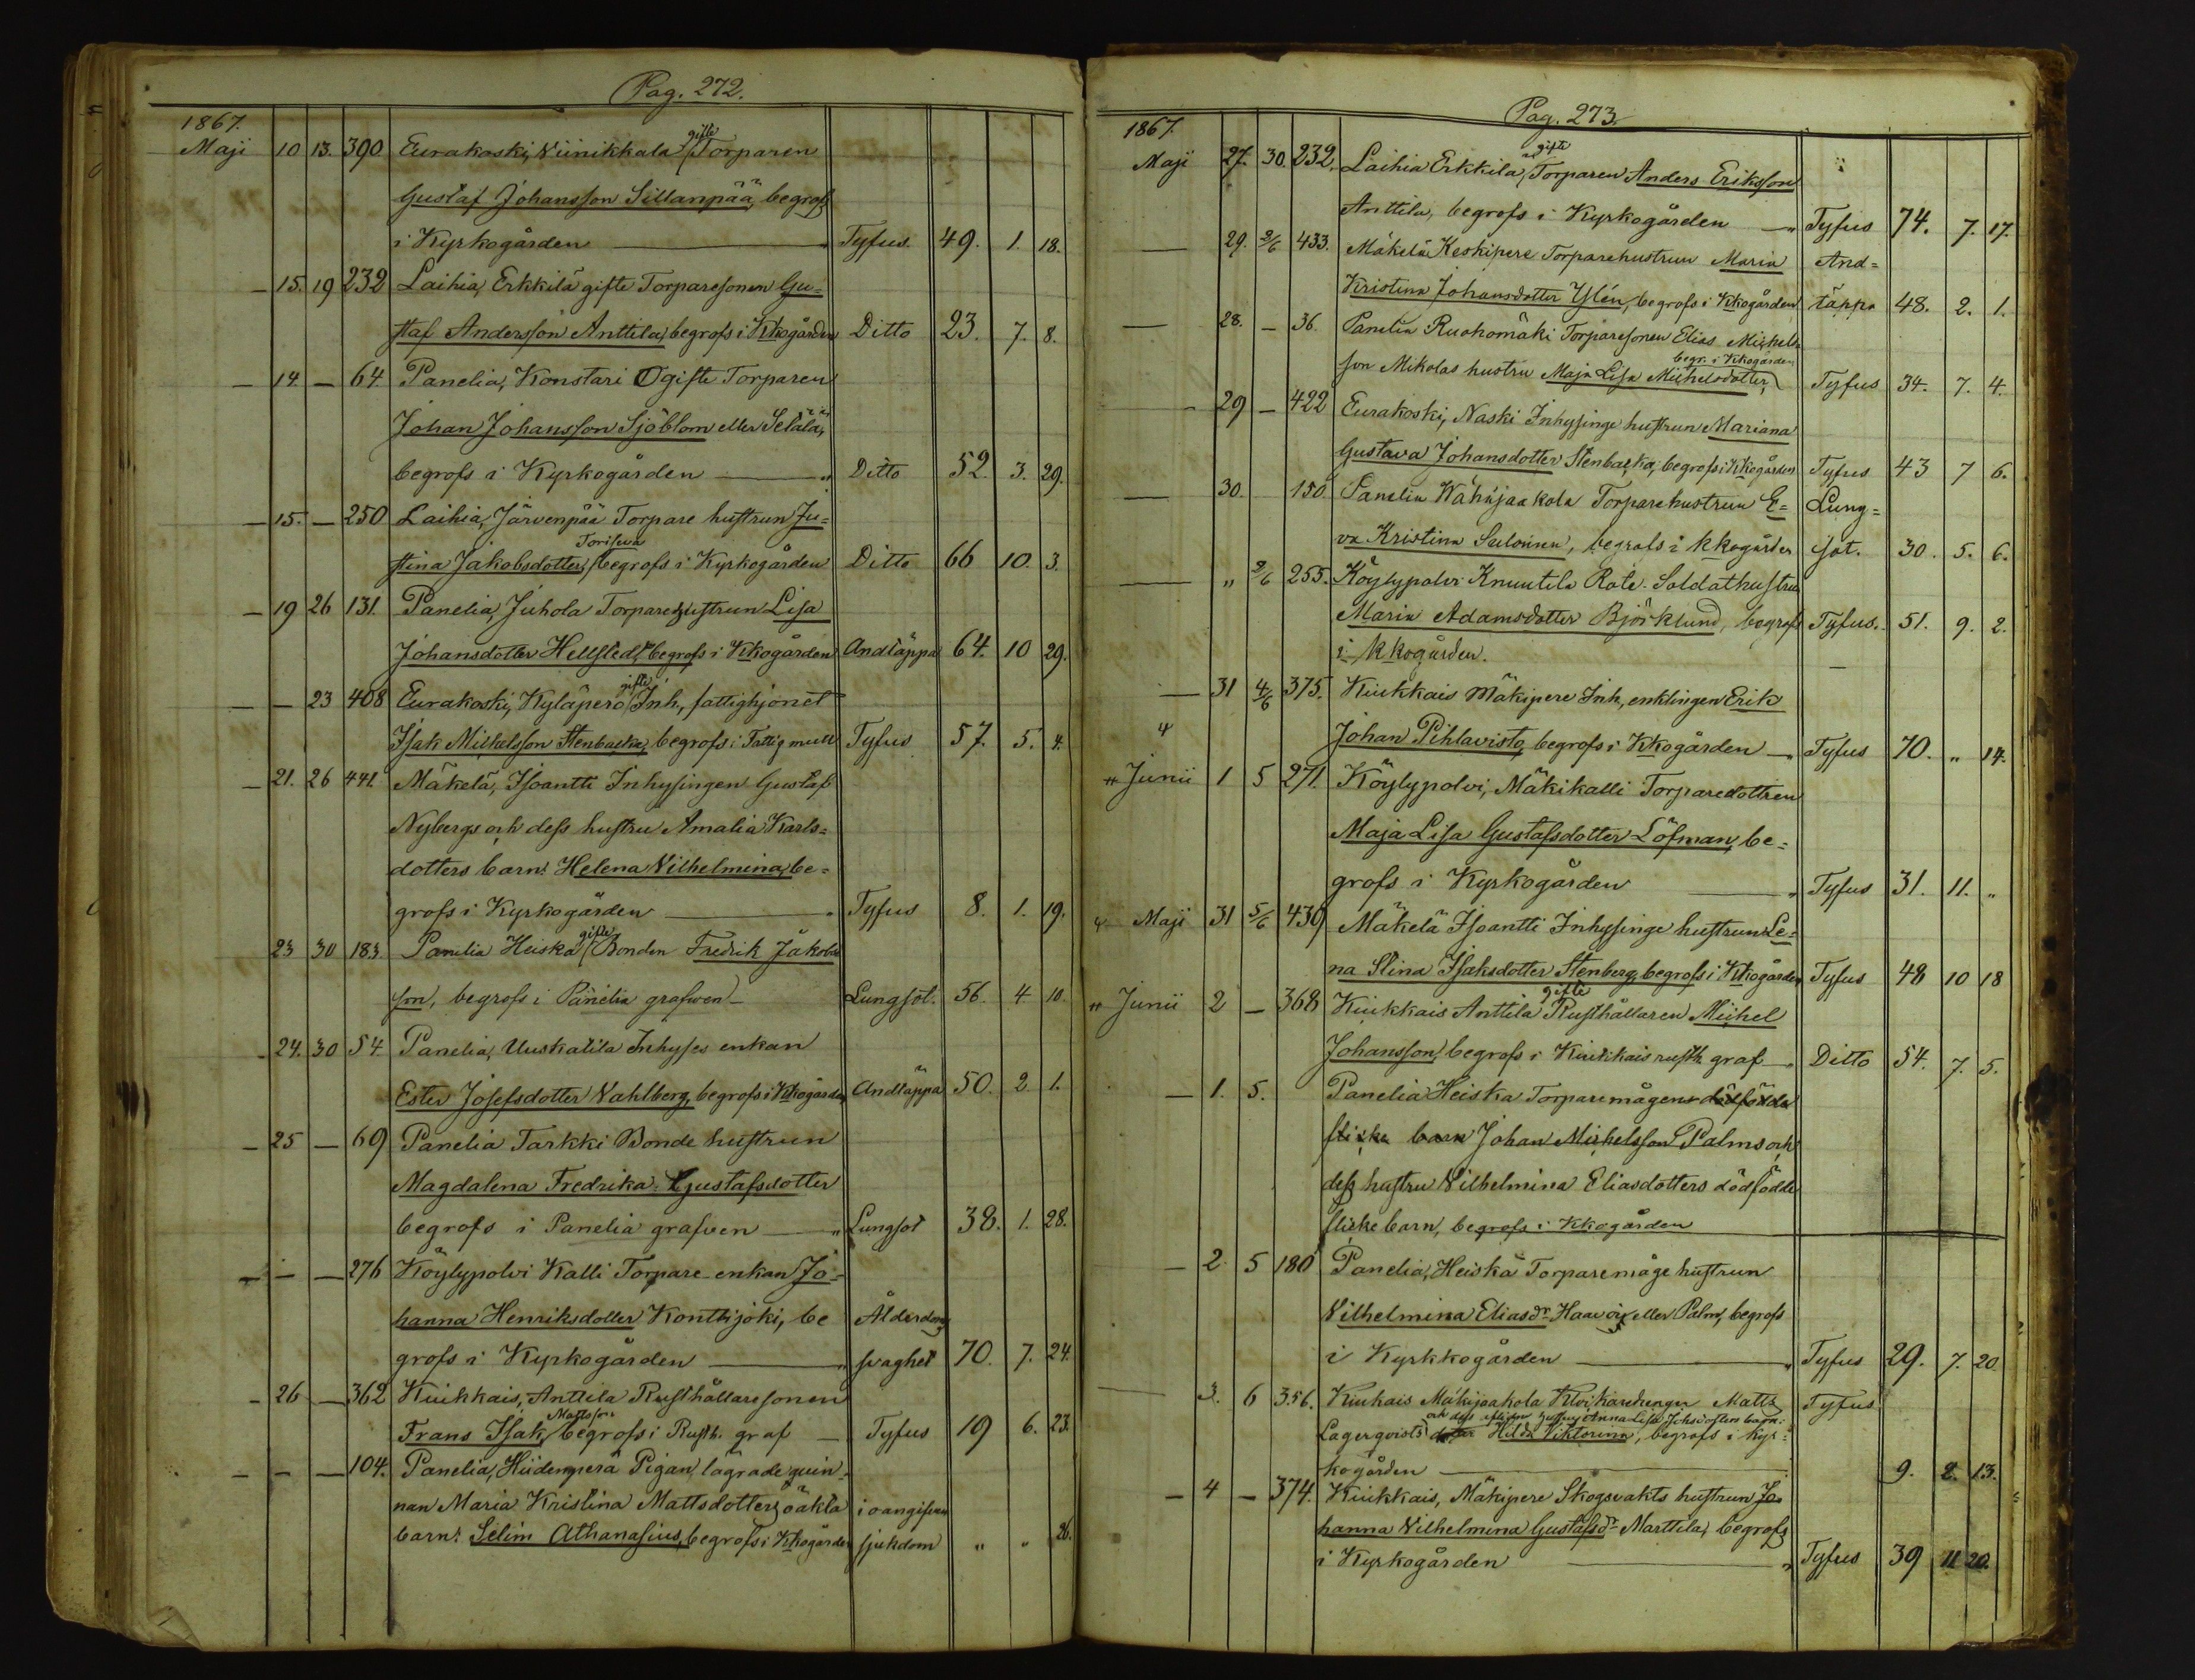 Pag. 272.
1867.
Maji 10 13. 390 Eurakoski, Viinikkala gifte Torparen
Gustaf Johansson Sillanpää, begrofs
i Kyrkogården — " Tyfus. 49. 1. 18.
— 15. 19 232 Laihia, Erkkilä gifte Torparesonen Gu=
staf Andersson Anttila, begrofs i Kkogården Ditto 23. 7. 8.
— 14 — 64 Panelia, Konstari Ogifte Torparen
Johan Johansson Sjöblom eller Setälä,
begrofs i Kyrkogården — " Ditto 52. 3. 29.
— 15. — 250 Laihia, Järvenpää Torpare hustrun Ju=
stina Jakobsdotter, Toriseva begrofs i Kyrkogården Ditto 66 10. 3.
— 19 26 131. Panelia, Juhola Torparehustrun Lisa
Johansdotter Hellsted, begrofs i Kkogården Andtäppa 64. 10 29.
— — 23 408 Eurakoski, Kyläperä gifte Inh., fattighjonet
Isak Michelsson Stenbacka, begrofs i Fattig mull Tyfus 57. 5. 4.
— 21. 26 441. Mäkelä, Isoantti Inhysingen Gustaf
Nybergs och dess hustru Amalia Karls=
dotters barn: Helena Vilhelmina, be=
grofs i Kyrkogården — " Tyfus 8. 1. 19.
23 30 183. Panelia Heiska gifte Bonden Fredrik Jakobs
son, begrofs i Panelia grafven — Lungsot. 56. 4 10.
— 24. 30 54. Panelia, Uuskatila Inhyses enkan
Ester Josefsdotter Vahlberg, begrofs i Kkogården Andtäppa 50. 2 1.
— 25 — 69 Panelia Tarkki Bonde hustrun
Magdalena Fredrika Gustafsdotter
begrofs i Panelia grafven — " Lungsot 38. 1. 28.
— — — 276 Köylypolvi Kalli Torpare enkan Jo=
hanna Henriksdotter Konttijoki, be Ålderdoms
grofs i Kyrkogården — " svaghet 70. 7. 24.
— 26 — 362 Kiukkais, Anttila Rusthållaresonen
Frans Isak Mattsson begrofs i Rusth. graf — Tyfus 19 6. 23.
— — — 104. Panelia, Hiidenperä Pigan, lägrade quin=
nan Maria Kristina Mattsdotters oäkta i oangifven
barn: Selim Athanasius, begrofs i Kkogården sjukdom " " 26.
Pag. 273.
1867.
Maji 27. 30. 232. Laihia Erkkila, gifte Torparen Anders Eriksson
Anttila, begrofs i Kyrkogården — " Tyfus 74. 7. 17.
— 29. 2/6 433. Mäkelä Keskipere Torparehustrun Maria And=
Kristina Johansdotter Ylén, begrofs i Kkogården täppa 48. 2. 1.
— 28. — 36. Panelia Ruohomäki Torparesonen Elias Michels
son Mikolas hustru Maja Lisa Michelsdotter, begr. i Kkogården Tyfus 34. 7. 4.
— 29 — 422 Eurakoski, Naski Inhysinge hustrun Mariana
Gustava Johansdotter Stenbacka, begrofs i Kkogården Tyfus 43 7 6.
— 30. 150 Panelia Wähäjaakola Torparehustrun E= Lung=
va Kristina Salonen, begrofs i kkogården sot. 30. 5. 6.
— " 2/6 255. Köylypolvi Knuutila Rote Soldathustrun
Maria Adamsdotter Björklund, begrofs Tyfus. 51. 9. 2.
i kkogården.
— 31 4/6 375. Kiukkais Mäkipere Inh, enklingen Erik
Johan Pihlavisto, begrofs i Kkogården — " Tyfus 70. " 14.
" Junii 1 5 271. Köylypolvi, Mäkikalli Torparedottren
Maja Lisa Gustafsdotter Löfman, be=
grofs i Kyrkogården — " Tyfus 31. 11. "
Maji 31 5/6 439 Mäkelä Isoantti Inhysinge hustrun Le=
na Stina Isaksdotter Stenberg, begrofs i Kkogården Tyfus 48 10 18
" Junii 2 — 368 Kiukkais Anttila gifte Rusthållaren Michel
Johansson, begrofs i Kiukkais rusth. graf — Ditto 54. 7. 5.
— 1. 5. Panelia Heiska Torparemågens dödfödda
flicke barn Johan Michelsson Palms och
dess hustru Vilhelmina Eliasdotters dödfödda
flicke barn, begrofs i Kkogården
— 2. 5 180 Panelia, Heiska Torparemåge hustrun
Vilhelmina Eliasdr. eller Palm, begrofs
i Kyrkkogården — " Tyfus 29. 7. 20
— 3. 6 356. Kiukais Mäkijaakola Matts Tyfus
Lagerqvists och dess Anna Lisa Johsdotters barn: Hilda Viktorina, begrofs i kyr=
kogården — 9. 2. 13.
— 4 — 374. Kiukkais, Mäkipere Skogsvakts hustrun Jo=
hanna Vilhelmina Gustafsdr. Marttila, begrofs
i Kyrkogården — " Tyfus 39 11 20.